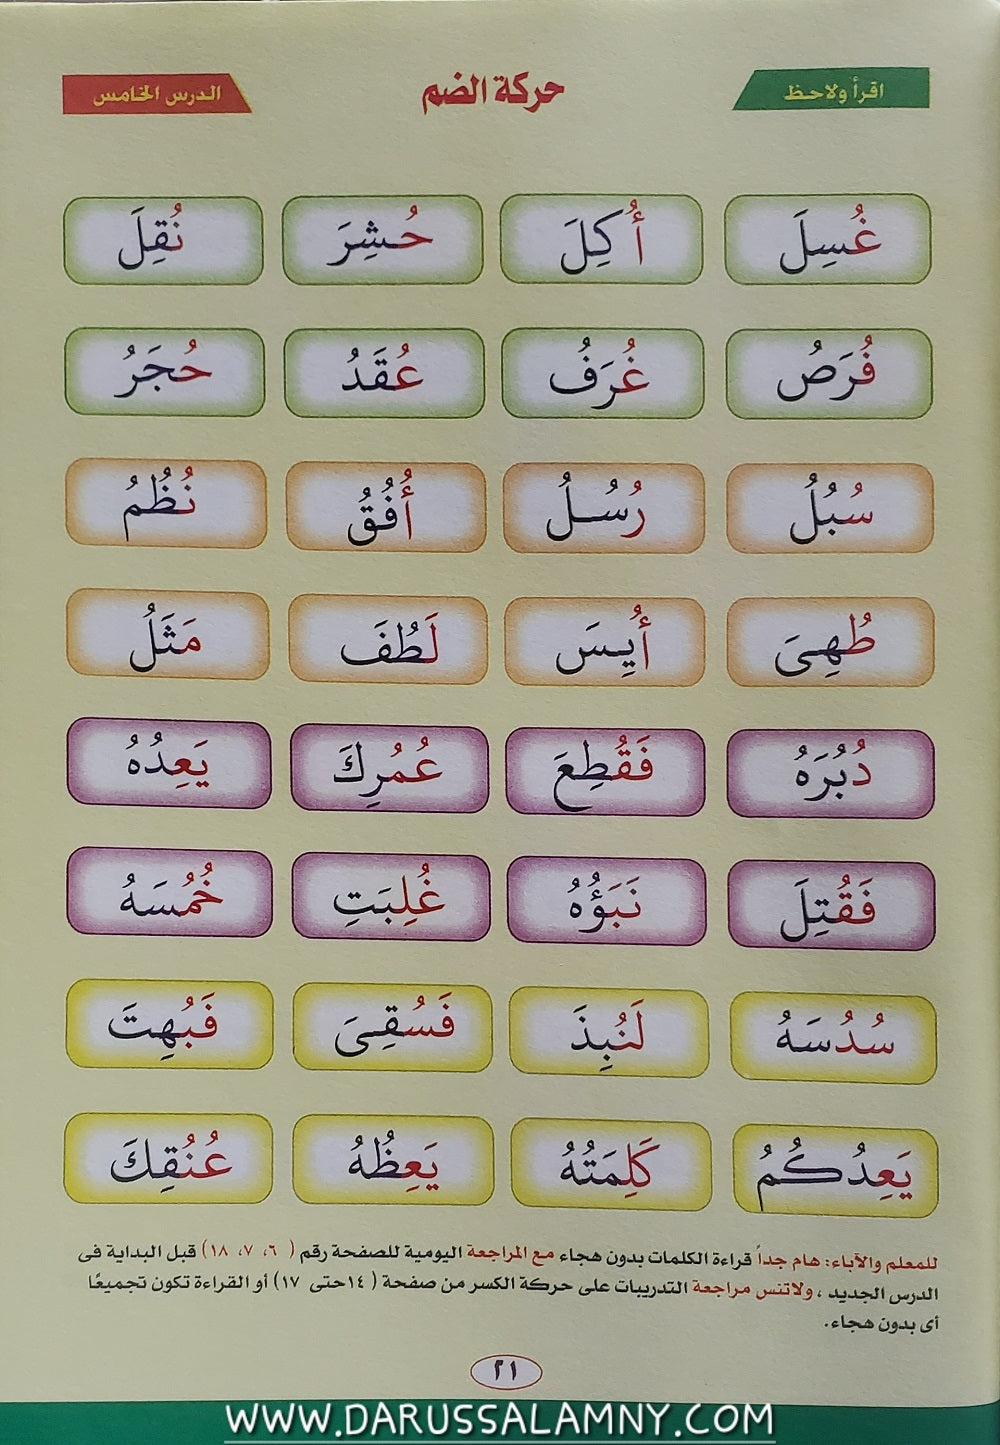 اقرأ ولاحظ حركة الضم الدرس الخامس
غُسِلَ أُكِلَ حُشِرَ نُقِلَ
فُرَصُ غُرَفُ عُقَدُ حُجَرُ
سُبُلُ رُسُلُ أُفُقُ نُظُمُ
طُهِىَ أُيِسَ لَطُفَ مَثَلُ
دُبُرَهُ فَقُطِعَ عُمُرِكَ يَعِدُهُ
فَقُتِلَ نَبَؤُهُ غُلِبَتِ خُمُسَهُ
سُدُسَهُ لَنُبِذَ فَسُقِىَ فَبُهِتَ
يَعِدُكُمُ كَلِمَتُهُ يَعِظُهُ عُنُقِكَ
للمعلم والآباء: هام جداً قراءة الكلمات بدون هجاء مع المراجعة اليومية للصفحة رقم ( ٦، ٧، ١٨) قبل البداية فى
الدرس الجديد ، ولاتنس مراجعة التدريبات على حركة الكسر من صفحة ( ١٤حتى ١٧) أو القراءة تكون تجميعًا
أى بدون هجاء.
٢١
WWW.DARUSSALAMNY.COM